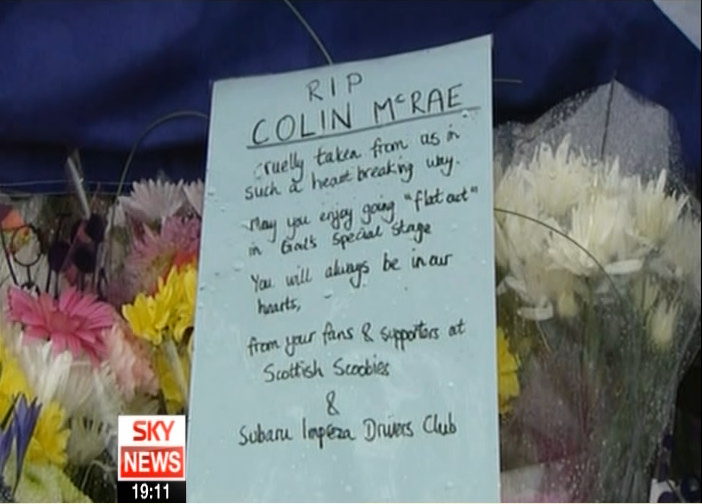 RIP
COLIN McRAE
Cruelly taken from us in
such a heartbreaking way.
May you enjoy going "flat out"
in God's Special Stage
You will always be in our
hearts,
from your fans & supporters at
Scottish Scoobies
&
Subaru Impreza Drivers Club
SKY
NEWS
19:11